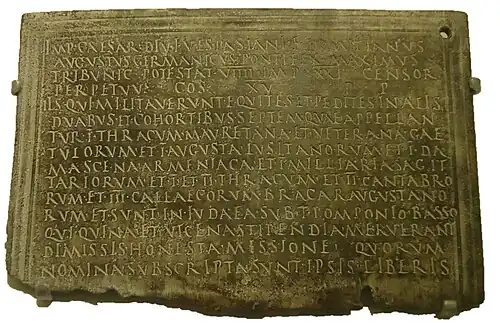 IMP·CAESAR·DIVI·VESPASIANI·F·DOMITIANVS
AVGVSTVS·GERMANICVS·PONTIFEX·MAXIMVS
TRIBVNIC·POTESTAT·VIIII· CENSOR
PERPETVVS· COS· XV· P P
IIS·QVI·MILITAVERVNT·EQVITES·ET·PEDITES·IN·ALIS
DVABVS·ET·COHORTIBVS·SEPTEM·QVAE·APPELLAN
TVR·I·THRACVM·MAVRETANA·ET·VETERANA·GAE
TVLORVM·ET·I·AVGVSTA·LVSITANORVM·ET·I·DA
MASCENA·ARMENIACA·ET·I·MILLIARIA·SAGIT
TARIORVM·ET·I·ET·II·THRACVM·ET·II·CANTABRO
RVM·ET·III·CALLAECORVM·BRACARAVGVSTANO
RVM·ET·SVNT·IN·IVDAEA·SVB·T·POMPONIO·BASSO
QVI·QVINA·ET·VICENA·STIPENDIA·MERVERANT
DIMISSIS·HONESTA·MISSIONE· QVORVM
NOMINA·SVBSCRIPTA·SVNT·IPSIS·LIBERIS